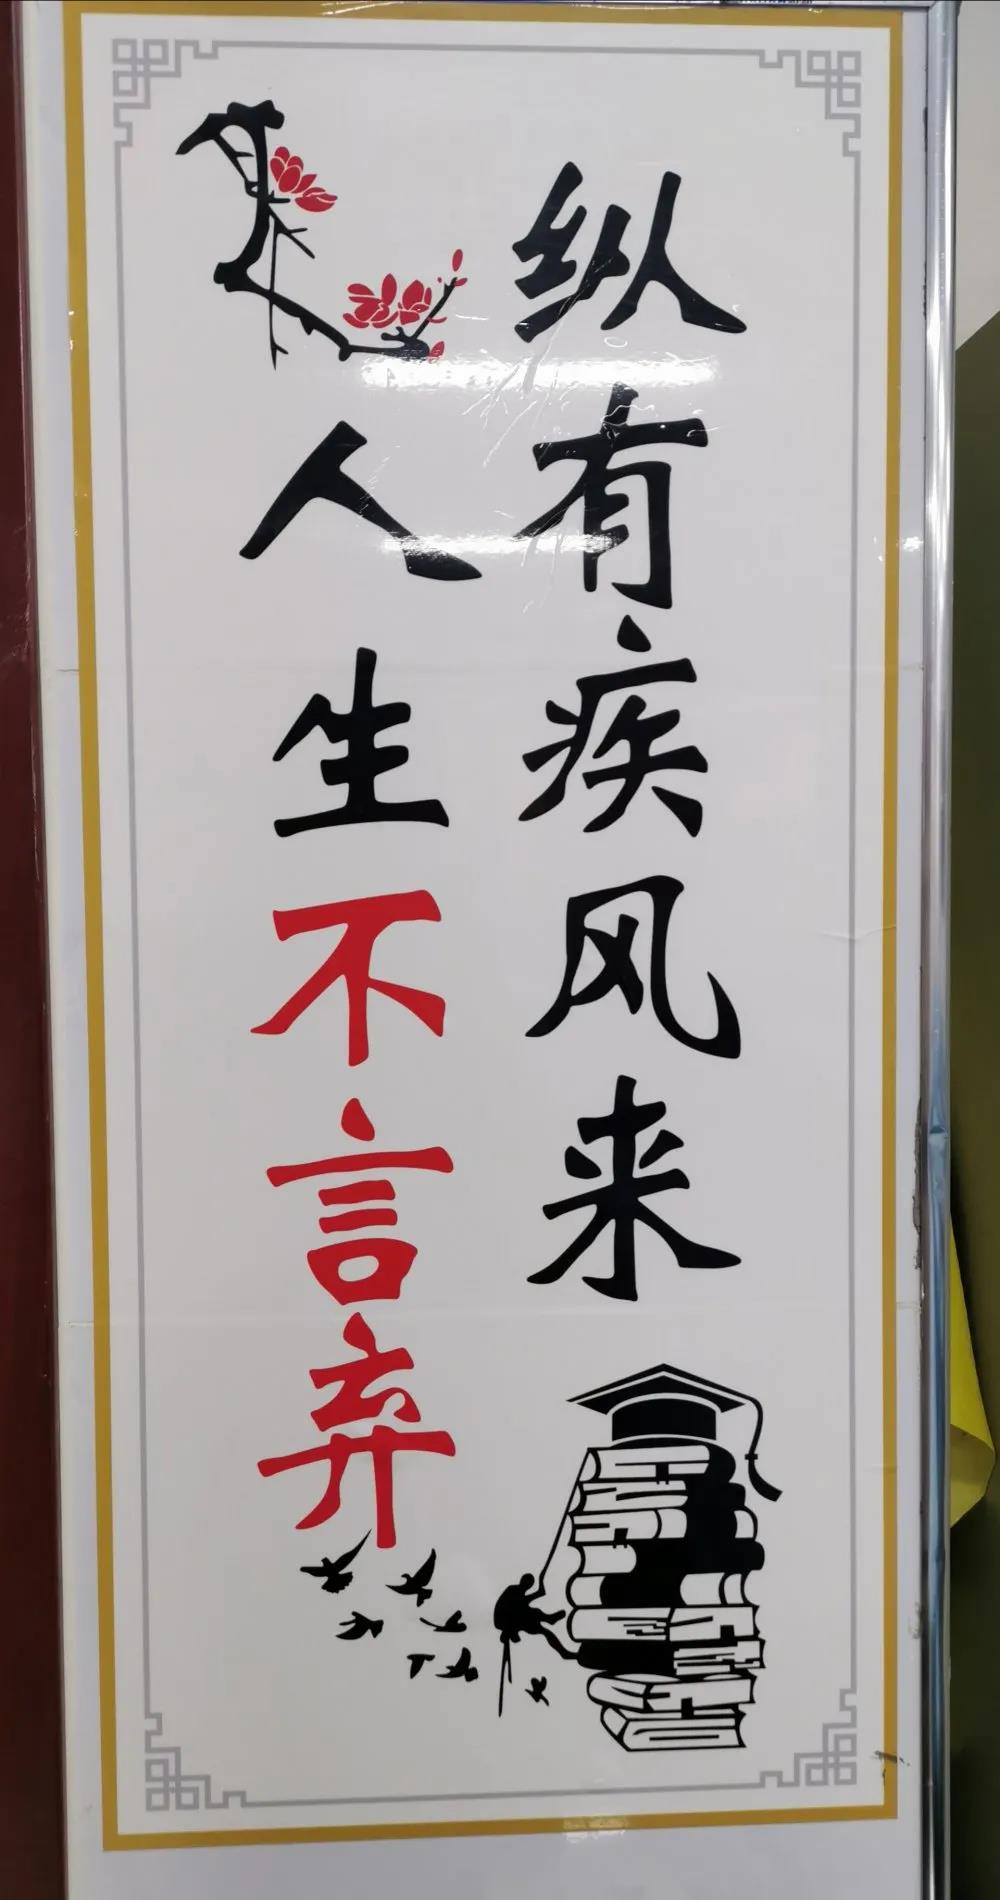 纵有疾风来
人生不言弃